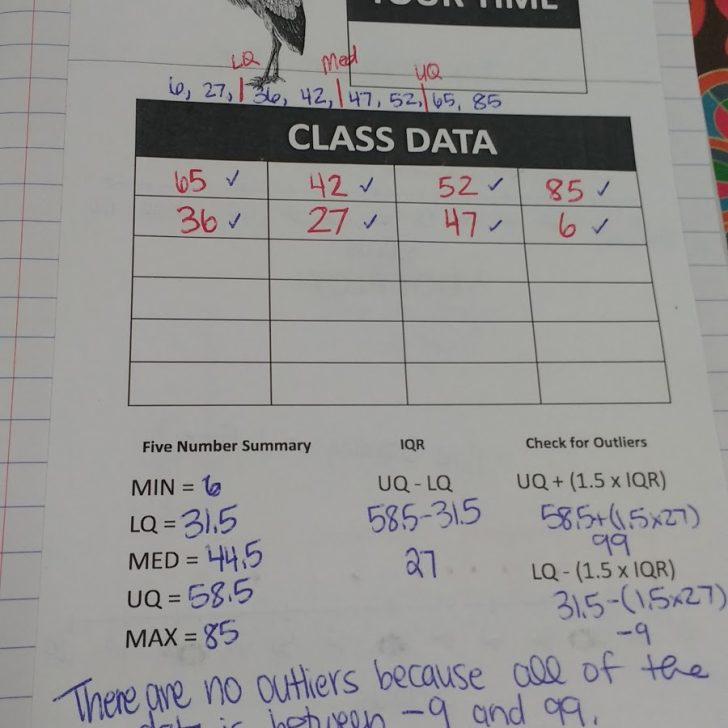 YOUR TIME
LQ Med UQ
6, 27, | 36, 42, | 47, 52, | 65, 85
CLASS DATA
65 ✓ 42 ✓ 52 ✓ 85 ✓
36 ✓ 27 ✓ 47 ✓ 6 ✓
Five Number Summary IQR Check for Outliers
MIN = 6 UQ - LQ UQ + (1.5 x IQR)
LQ = 31.5 58.5-31.5 58.5+(1.5x27)
99
MED = 44.5 27 LQ - (1.5 x IQR)
UQ = 58.5 31.5-(1.5x27)
MAX = 85 -9
There are no outliers because all of the
data is between -9 and 99.